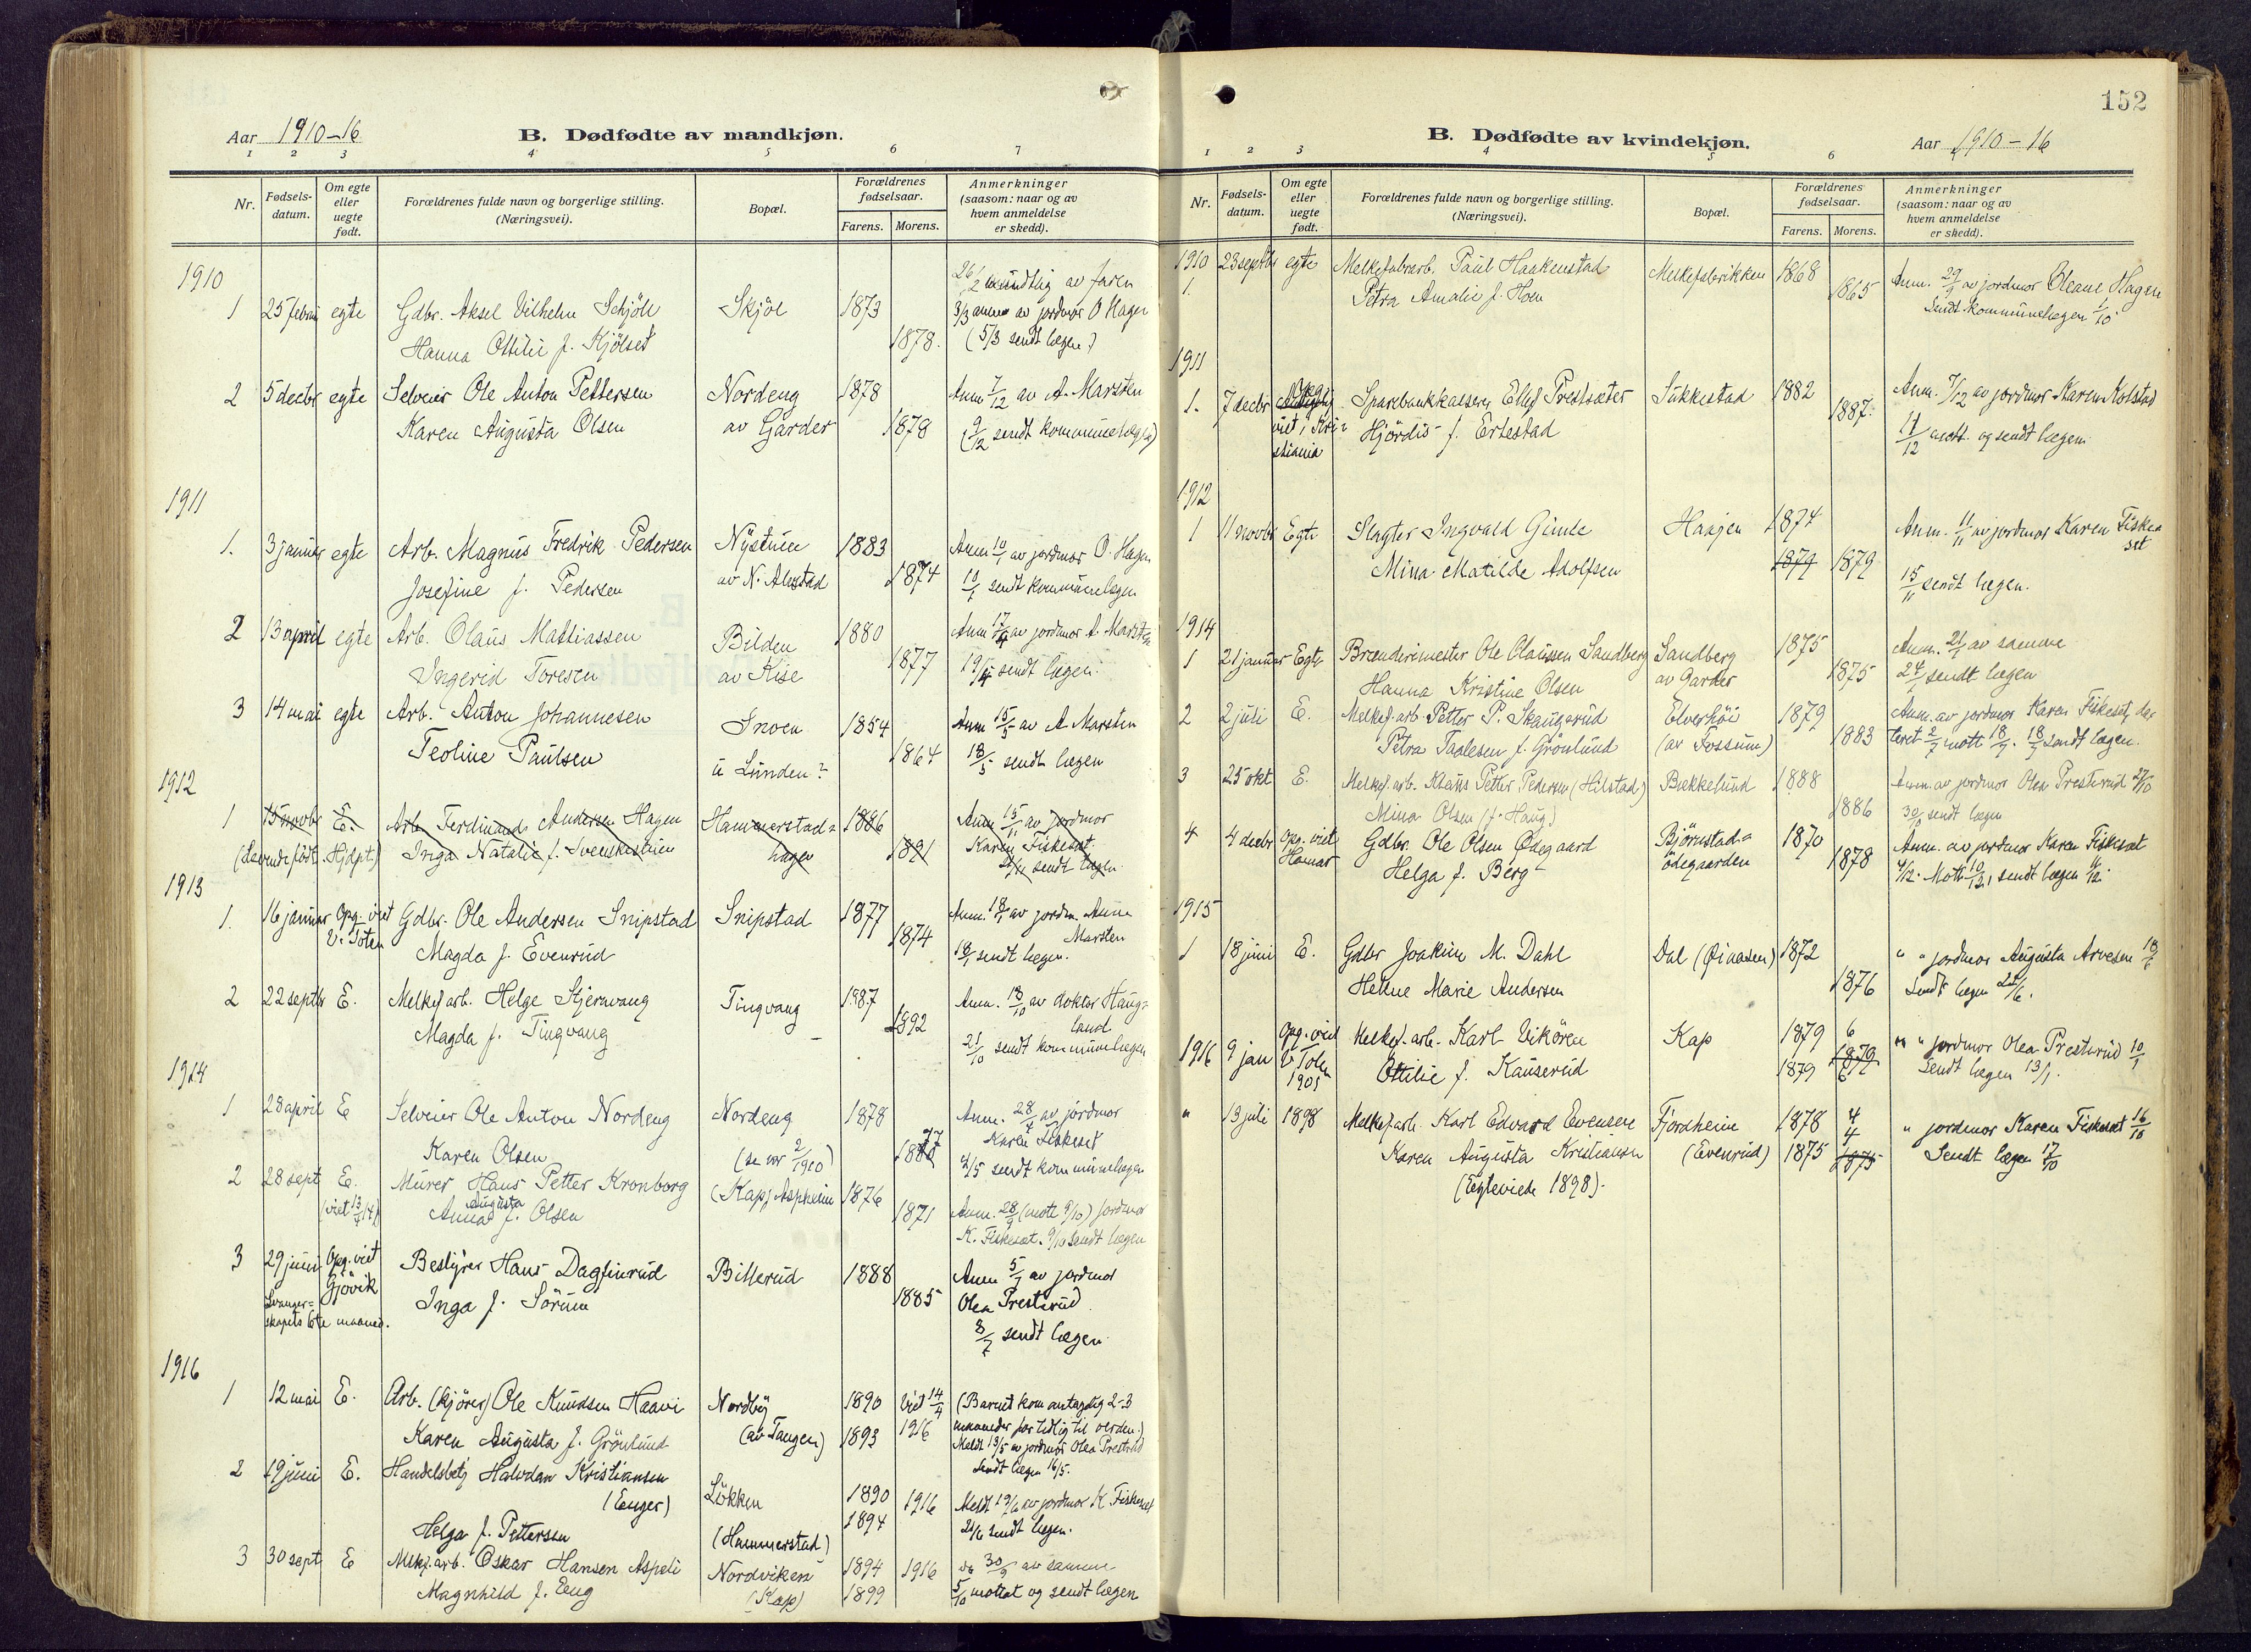 Aar 1910-16
B. Dødfødte av mandkjøn.
1 2 3 4 5 6 7
Nr.
Fødsels-
datum.
Om egte
eller
uegte
født.
Forældrenes fulde navn og borgerlige stilling.
(Næringsvei).
Bopæl.
Forældrenes
fødselsaar.
Farens. Morens.
Anmerkninger
(saasom: naar og av
hvem anmeldelse
er skedd).
1910
26/2 mundtlig av faren
1 25 februar egte Gdbr. Aksel Vilhelm Schjöll Skjöl 1873 3/3 anm av jordmor O Hagen
Hanna Ottilie f. Kjölset 1878. (5/3 sendt lægen)
2 5 decbr egte Selveier Ole Anton Pettersen Nordeng 1878 Anm 7/12 av A. Marsten
Karen Augusta Olsen av Garder 1878 (9/12 sendt kommunelæge)
1911
1. 3 januar egte Arb. Magnus Fredrik Pedersen Nystuen 1883 Anm 10/1 av jordmor O. Hagen
Josefine f. Pedersen av N. Alustad 1874 10/1 sendt kommunelægen
2 13 april egte Arb. Olaus Mattiassen Bilden 1880 Anm 17/4 av jordmor A. Marsten
Ingerid Toresen av Kise 1877 19/4 sendt lægen.
3 14 mai egte Arb. Anton Johannesen Snoen 1854 Anm 15/5 av A Marsten
Teoline Paulsen u Lunden? 1864 18/5 sendt lægen
1912
1 15 novbr E. Arb. Ferdinand Andersen Hagen Hammerstad- 1886 Anm 15/11 av jordmor
(Levende født. Hjdpt.) Inga Natalie f. Svenskestuen hagen 1891 Karen Fiskeset.
sendt lægen
1913
1. 16 januar Opg. viet Gdbr. Ole Andersen Snipstad Snipstad 1877 Anm. 18/1 av jordm. Anne
V. Toten Magda f. Evenrud 1874 Marsten
18/1 sendt lægen.
2 22 septbr E. Melkef arb. Helge Stjernvang Tingvang 1887 Anm. 18/10 av doktor Haug-
Magda f. Tingvang 1892 land
21/10 sendt kommunelægen
1914
1 28 april E Selveier Ole Anton Nordeng Nordeng 1878 Anm. 28/4 av jordmor
Karen Olsen (se nr 2/1910) 77 Karen Fiskeset
4/5 sendt kommunelægen
2 28 sept E. Murer Hans Petter Kronborg (Kap) Aspheim 1876
(viet 13/4 14) Anna Augusta f. Olsen 1871 Anm. 28/9 (mott 9/10) jordmor
K. Fiskeset. 9/10 sendt lægen
3 29 juni Opg. viet Bestyrer Hans Dagfinrud Billerud 1888 Anm 5/7 av jordmor
Gjövik Inga f. Sörum 1885 Olea Presterud.
Svanger-
skapets 6te maaned. 8/7 sendt lægen.
1916
1 12 mai E. Arb. (kjörer) Ole Knudsen Haavi Nordby 1890 Viet 14/4 (Barnet kom antagelig 2-3
Karen Augusta f. Grönlund (av Tangen) 1893 1916 maaneder for tidlig til verden.)
Meldt 13/5 av jordmor Olea Presterud
Sendt lægen 16/5.
2 19 juni E. Handelsbetj Halvdan Kristiansen
(Enger) Lökken 1890 1916 Meldt 19/6 av jordmor K Fiskeset
Helga f. Pettersen (Hammerstad) 1894 21/6 sendt lægen.
3 30 sept E Melkf. arb. Oskar Hansen Aspeli Nordviken 1894 1916 do 30/9 av samme
Magnhild f. Eng (Kap) 1899 5/10 mottat og sendt lægen
152
B. Dødfødte av kvindekjøn.
Aar 1910-16
1 2 3 4 5 6
Nr.
Fødsels-
datum.
Om egte
eller
uegte
født.
Forældrenes fulde navn og borgerlige stilling.
(Næringsvei).
Bopæl.
Forældrenes
fødselsaar.
Farens. Morens.
Anmerkninger
(saasom: naar og av
hvem anmeldelse
er skedd).
1910 23 septbr egte Melkefabrarb. Paul Haakenstad Melkefabrikken 1868 Anm. 29/9 av jordmor Oleane Hagen
1. Petra Amalie f. Hoen 1865 Sendt kommunelægen 1/10
1911
1. 7 decbr Sparebankkasserer Ellef Prestsæter Sukkestad 1882 Anm. 7/12 av jordmor Karen Kolstad
viet i Kri- Hjördis f. Ertestad 1887. 11/12 mott. og sendt lægen
stiania
1912
1 11 novbr Egte Slagter Ingvald Gimle Haajen 1874 Anm. 11/11 av jordmor Karen Fiske-
Mina Matilde Adolfsen 1879 1879 set
15/11 sendt lægen.
1914
1 21 januar Egte Brænderimester Ole Olaussen Sandberg Sandberg 1875 Anm. 21/1 av samme
Hanna Kristine Olsen av Garder 1875 24/1 sendt lægen
2 2 juli E. Melkef. arb. Petter P. Skaugerud Elverhöi 1879 Anm. av jordmor Karen Fiskeset, da-
Petra Taalesen f. Grönlund (av Fossum) 1883 teret 2/7 mott 18/7. 18/7 sendt lægen.
3 25 okt E. Melkef. arb. Klaus Petter Pedersen (Hilstad) Bækkelund 1888 Anm. av jordmor Olea Presterud 27/10
Mina Olsen (f. Haug) 1886 30/10 sendt lægen
4 4 decbr Opg. viet Gdbr. Ole Olsen Ødegaard Björnstad- 1870 Anm. av jordmor Karen Fiskeset
Hamar Helga f. Berg ödegaarden 1878 4/12. Mott. 10/12, sendt lægen 11/12.
1915
1 18 juni E. Gdbr Joakim M. Dahl Dal (Øiaasen) 1872 " " jordmor Augusta Arvesen 18/6
Helene Marie Andersen 1876 Sendt lægen 22/6.
1916 9 jan Opg. viet Melkef. arb. Karl Vikören Kap 1879 6 " " jordmor Olea Presterud 10/1
V Toten Ottilie f. Kauserud 1879 1879 6 Sendt lægen 13/1.
1905
" 13 juli 1898 Melkef. arb. Karl Edvard Evensen Fjordheim 1878 4 " jordmor Karen Fiskeset 16/10
Karen Augusta Kristiansen (Evenrud) 1875 4 1875 Sendt lægen 17/10
(Egteviede 1898).